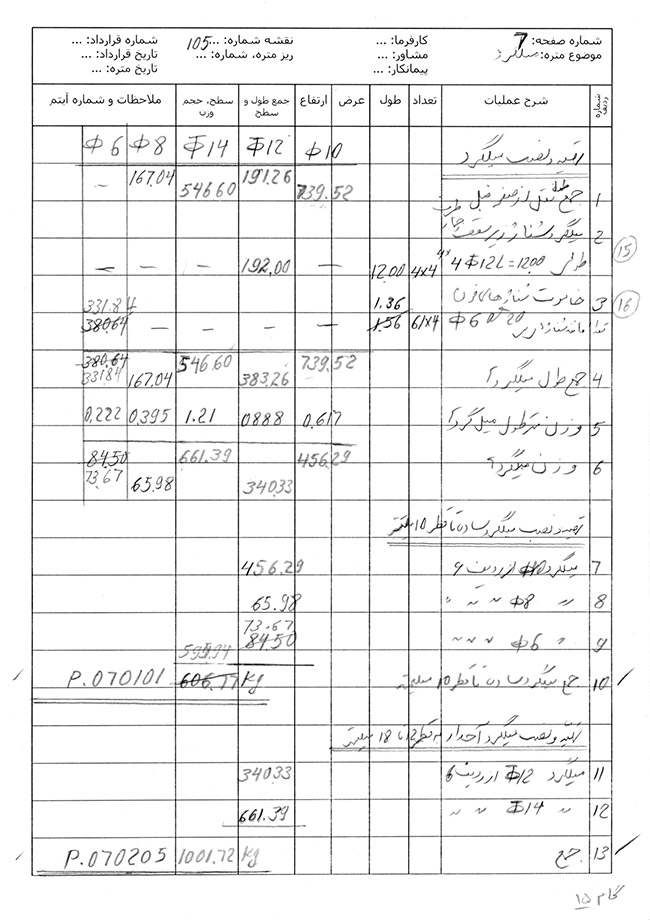 شماره صفحه: 7 کارفرما: ... نقشه شماره: ...105 شماره قرارداد: ...
موضوع متره: میلگرد مشاور: ... ریز متره، شماره: ... تاریخ قرارداد: ...
پیمانکار: ... تاریخ متره: ...
شماره ردیف شرح عملیات تعداد طول عرض ارتفاع جمع طول و سطح سطح، حجم وزن ملاحظات و شماره آیتم
تهیه و نصب میلگرد Φ10 Φ12 Φ14 Φ8 Φ6
1 جمع طول نقل از صفحه قبل 739.52 191.26 546.60 167.04 –
2 میلگرد شناژ زیر سقف
طولی 4Φ12 L=1200 4×4 12.00 – 192,00 – – – 15
3 خاموت شناژهای فوق 1.36 331.84 16
Φ6 @ 20 61×4 1.56 – – – – 380.64
4 جمع طول میلگردها 739.52 383.26 546.60 167.04 380.64 331.84
5 وزن متر طول میلگردها 0.617 0.888 1.21 0.395 0.222
6 وزن میلگردها 456.29 340.33 661.39 65.98 84.50 73.67
تهیه و نصب میلگرد ساده تا قطر 10 میلیمتر
7 میلگرد Φ10 از ردیف 6 456.29
8 〃 Φ8 〃 〃 〃 65.98
73.67
9 〃 Φ6 〃 〃 〃 84.50
595.94
10 جمع میلگرد ساده تا قطر 10 میلیمتر 606.77 Kg P.070101
تهیه و نصب میلگرد آجدار به قطر 12 تا 18 میلیمتر
11 میلگرد Φ12 از ردیف 6 340.33
12 〃 Φ14 〃 〃 661.39
13 جمع 1001.72 Kg P.070205
گام ۱۵